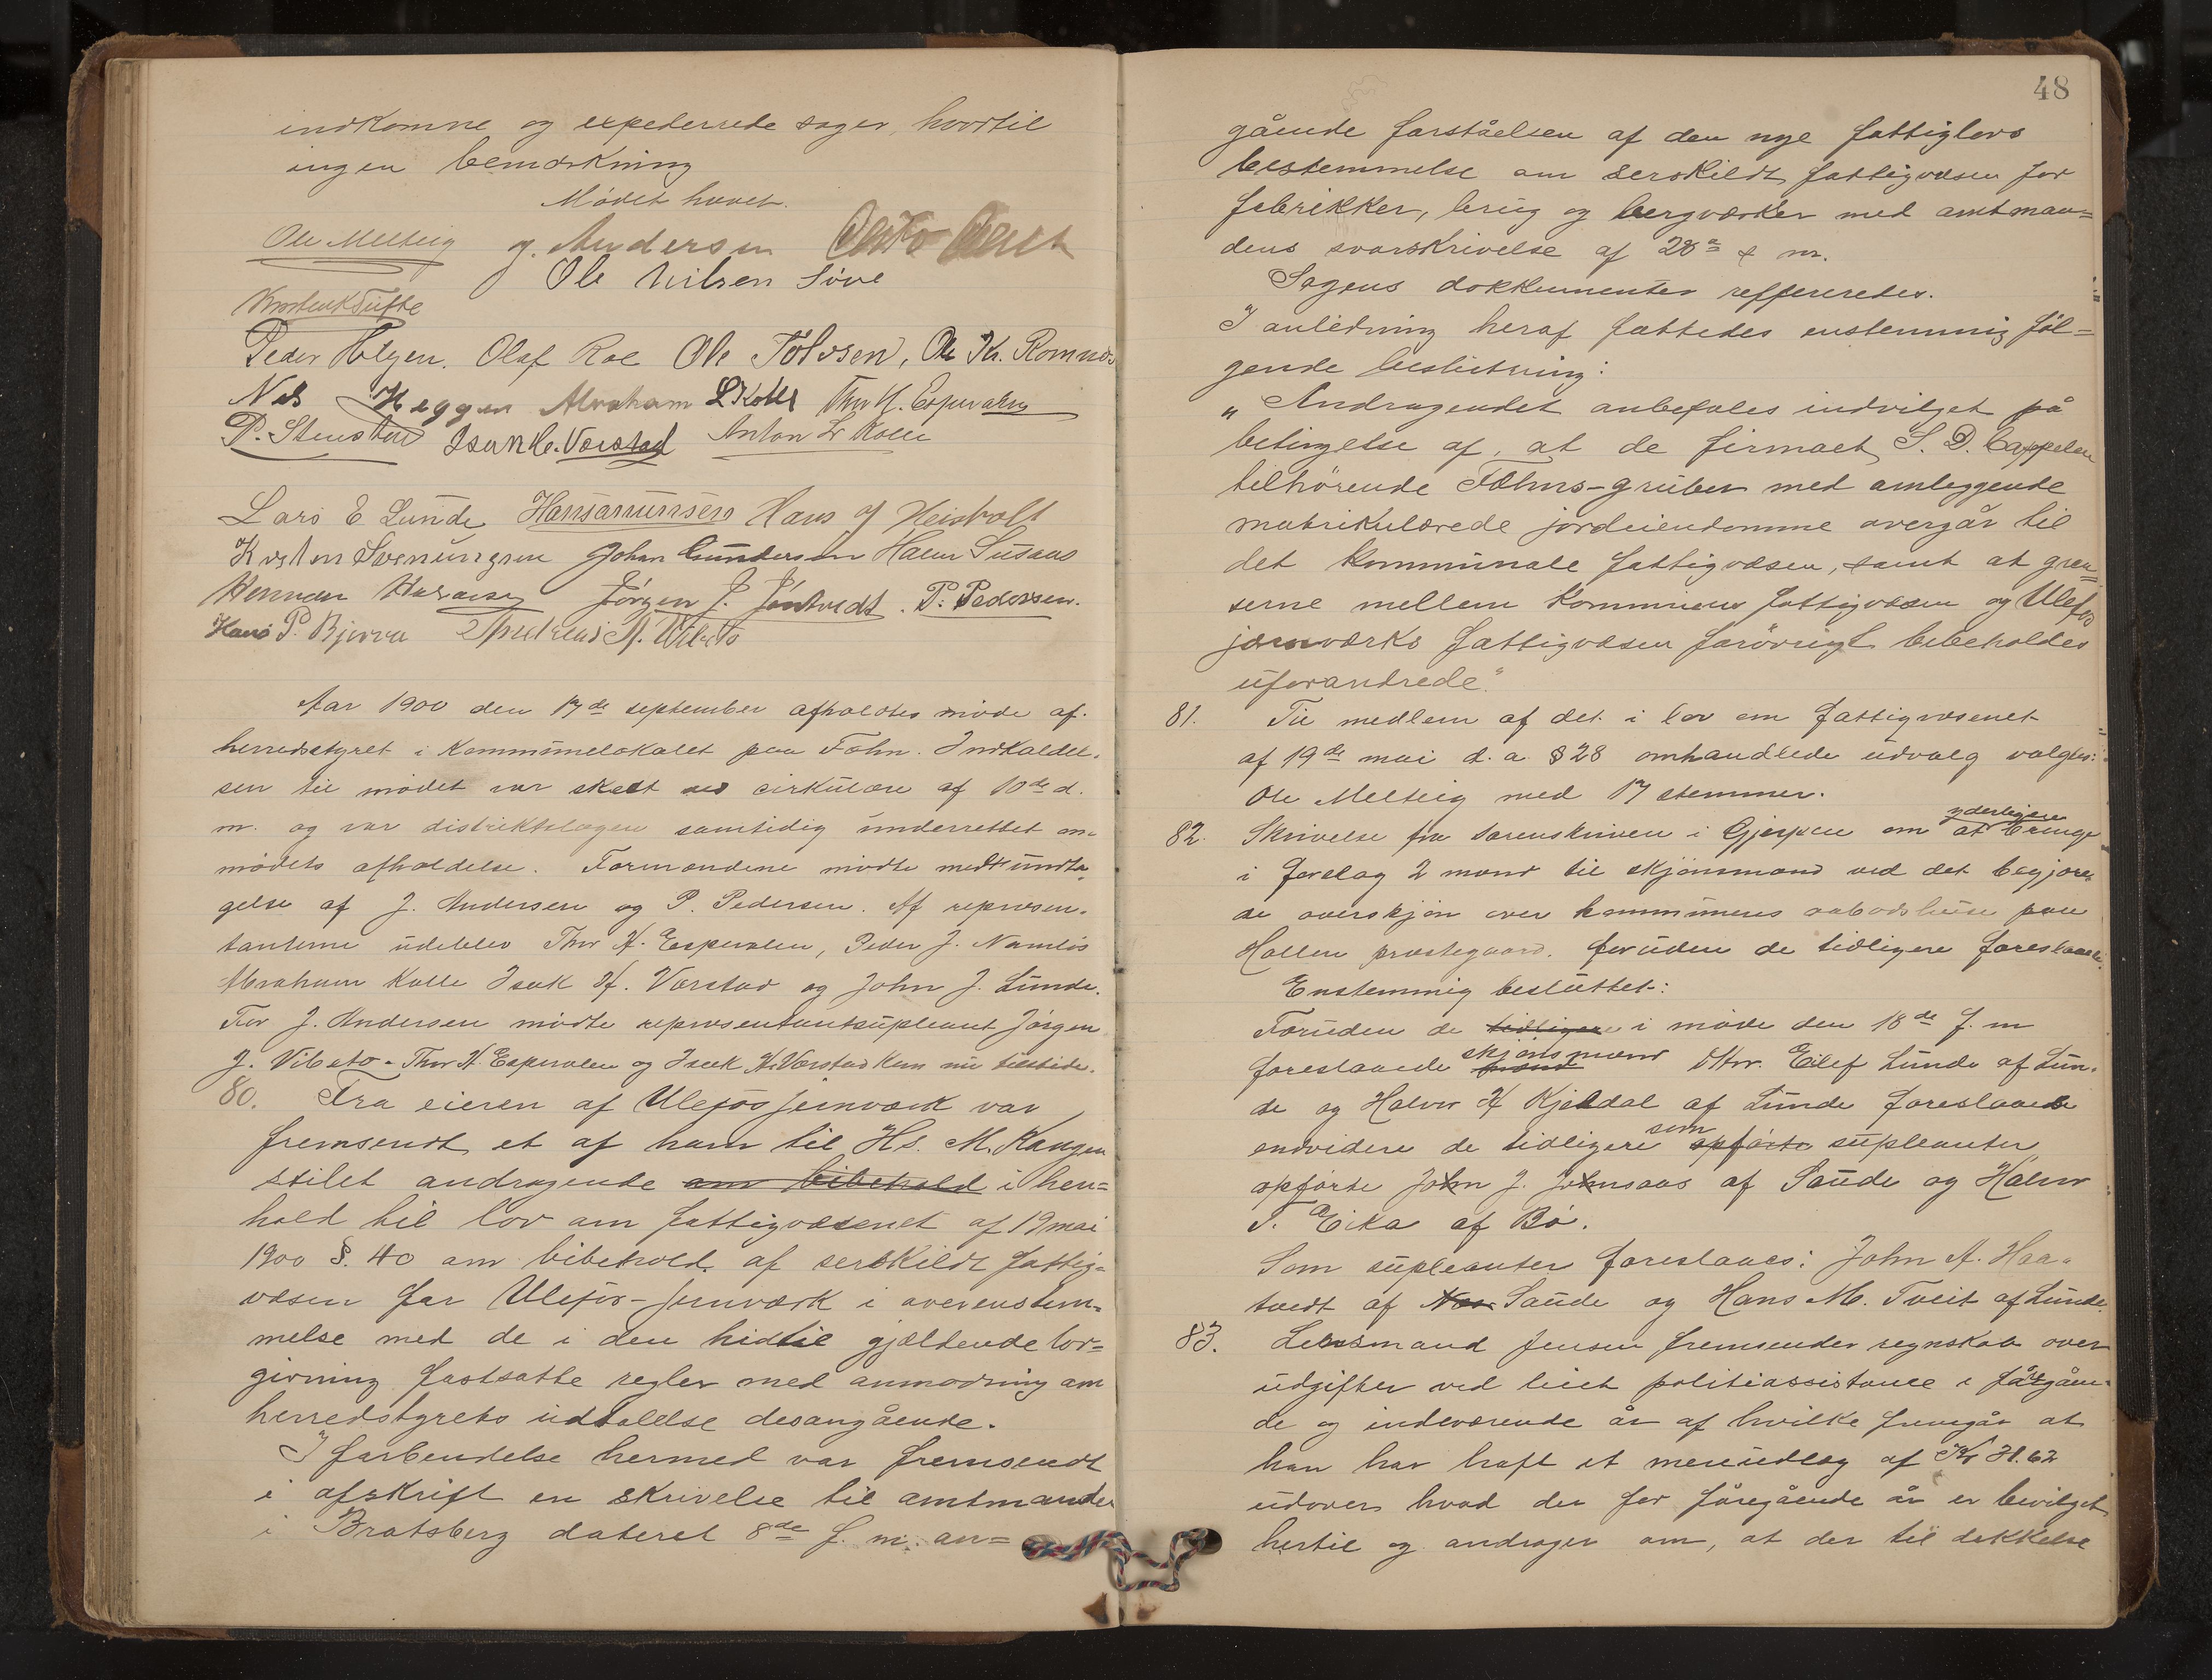 indkomne og expederrede sager, hvortil
ingen bemærkning
Mødet hævet.
Ole Melteig J. Andersen
Ole Nilsen Søve
Peder Helgen. Olaf Roe Ole Tolvsen, Ole Kr. Romnæs
Nils Heggen Abraham L Kolle Thor H. Espevalen
P. Stensten Isak H. Værstad Anton L. Kolle
Lars E Lunde Hans Hansen Hans J Heisholt
Kristen Svenungsen Johan Gundersen Halvor Susaas
Herman Halvorsen Jørgen J. Jøntvedt. P. Pedersen.
Hans P. Bjerva Andreas A. Vibeto
Aar 1900 den 17de september afholdtes møde af
herredstyret i kommunelokalet paa Fæhn. Indkaldel-
sen til mødet var skedt ved cirkulære af 10de d.
m. og var distriktslægen samtidig underrettet om
mødets afholdelse. Formændene mødte med undta-
gelse af J. Andersen og P. Pedersen. Af repræsen-
tanterne udeblev Thor H. Espevalen, Peder J. Namløs
Abraham Kolle Isak H. Værstad og John J. Lunde.
For J. Andersen mødte repræsentantsupleant Jørgen
J. Vibeto - Thor H. Espevalen og Isak H. Værstad kom nu tilstede.
80. Fra eieren af Ulefos jernværk var
fremsendt et af ham til Hs. M. Kongen
stilet andragende om bibehold i hen=
hold til lov om fattigvæsenet af 19 mai
1900 §. 40 om bibehold af serskildt fattig-
væsen for Ulefos-Jernværk i overenstem=
melse med de i den hidtil gjældende lov=
givning fastsatte regler med anmodning om
herredstyrets udtalelse desangående.
I forbendelse hermed var fremsendt
i afskrift en skrivelse til amtmanden
i Bratsberg dateret 8de f. m. an=
48
gående forståelsen af den nye fattiglovs
bestemmelse om serskildt fattigvæsen for
fabrikker, brug og bergværker med amtman=
dens svarskrivelse af 28de s. m.
Sagens dokkumenter reffereredes.
I anledning heraf fattedes enstemmig føl=
gende beslutning:
"Andragendet anbefales indvilget på
betingelse af, at de firmaet S. D. Cappelen
tilhørende Fæhns-gruber med omleggende
matrikulerede jordeiendomme overgår til
det kommunale fattigvæsen, samt at græn=
serne mellem kommunens fattigvæsen og Ulefos
jernværks fattigvæsen forøvrigt bibeholdes
uforandrede."
81. Til medlem af det i lov om fattigvæsenet
af 19de mai d. a. § 28 omhandlede udvalg valgtes:
Ole Melteig med 17 stemmer.
82. Skrivelse fra sorenskriven i Gjerpen om at yderligere bringe
i forslag 2 mænd til skjønsmænd ved det begjære-
de overskjøn over kommunens aabodshuse paa
Hollen præstegaard. foruden de tidligere foreslaaede.
Enstemmig besluttet:
Foruden de tidligere i møde den 18de f. m
foreslaaede mænd skjønsmænd Eilef Lunde af Lun-
de og Halvor H Kjeldal af Lunde foreslaaes
endvidere de tidligere som opførte supleanter
opførte John J. Johnsaas af Saude og Halvor
T. Eika af Bø.
Som supleanter foreslaaes: John A. Haa-
tvedt af Næs Saude og Hans M. Tveit af Lunde.
83. Lensmand Jensen fremsender regnskab over
udgifter ved leiet politiassistance i foregåen-
de og indeværende år af hvilke fremgår at
han har haft et mereudlæg af Kr 31.62
udover hvad der for foregående år er bevilget
hertil og andrager om, at der til dekkelse